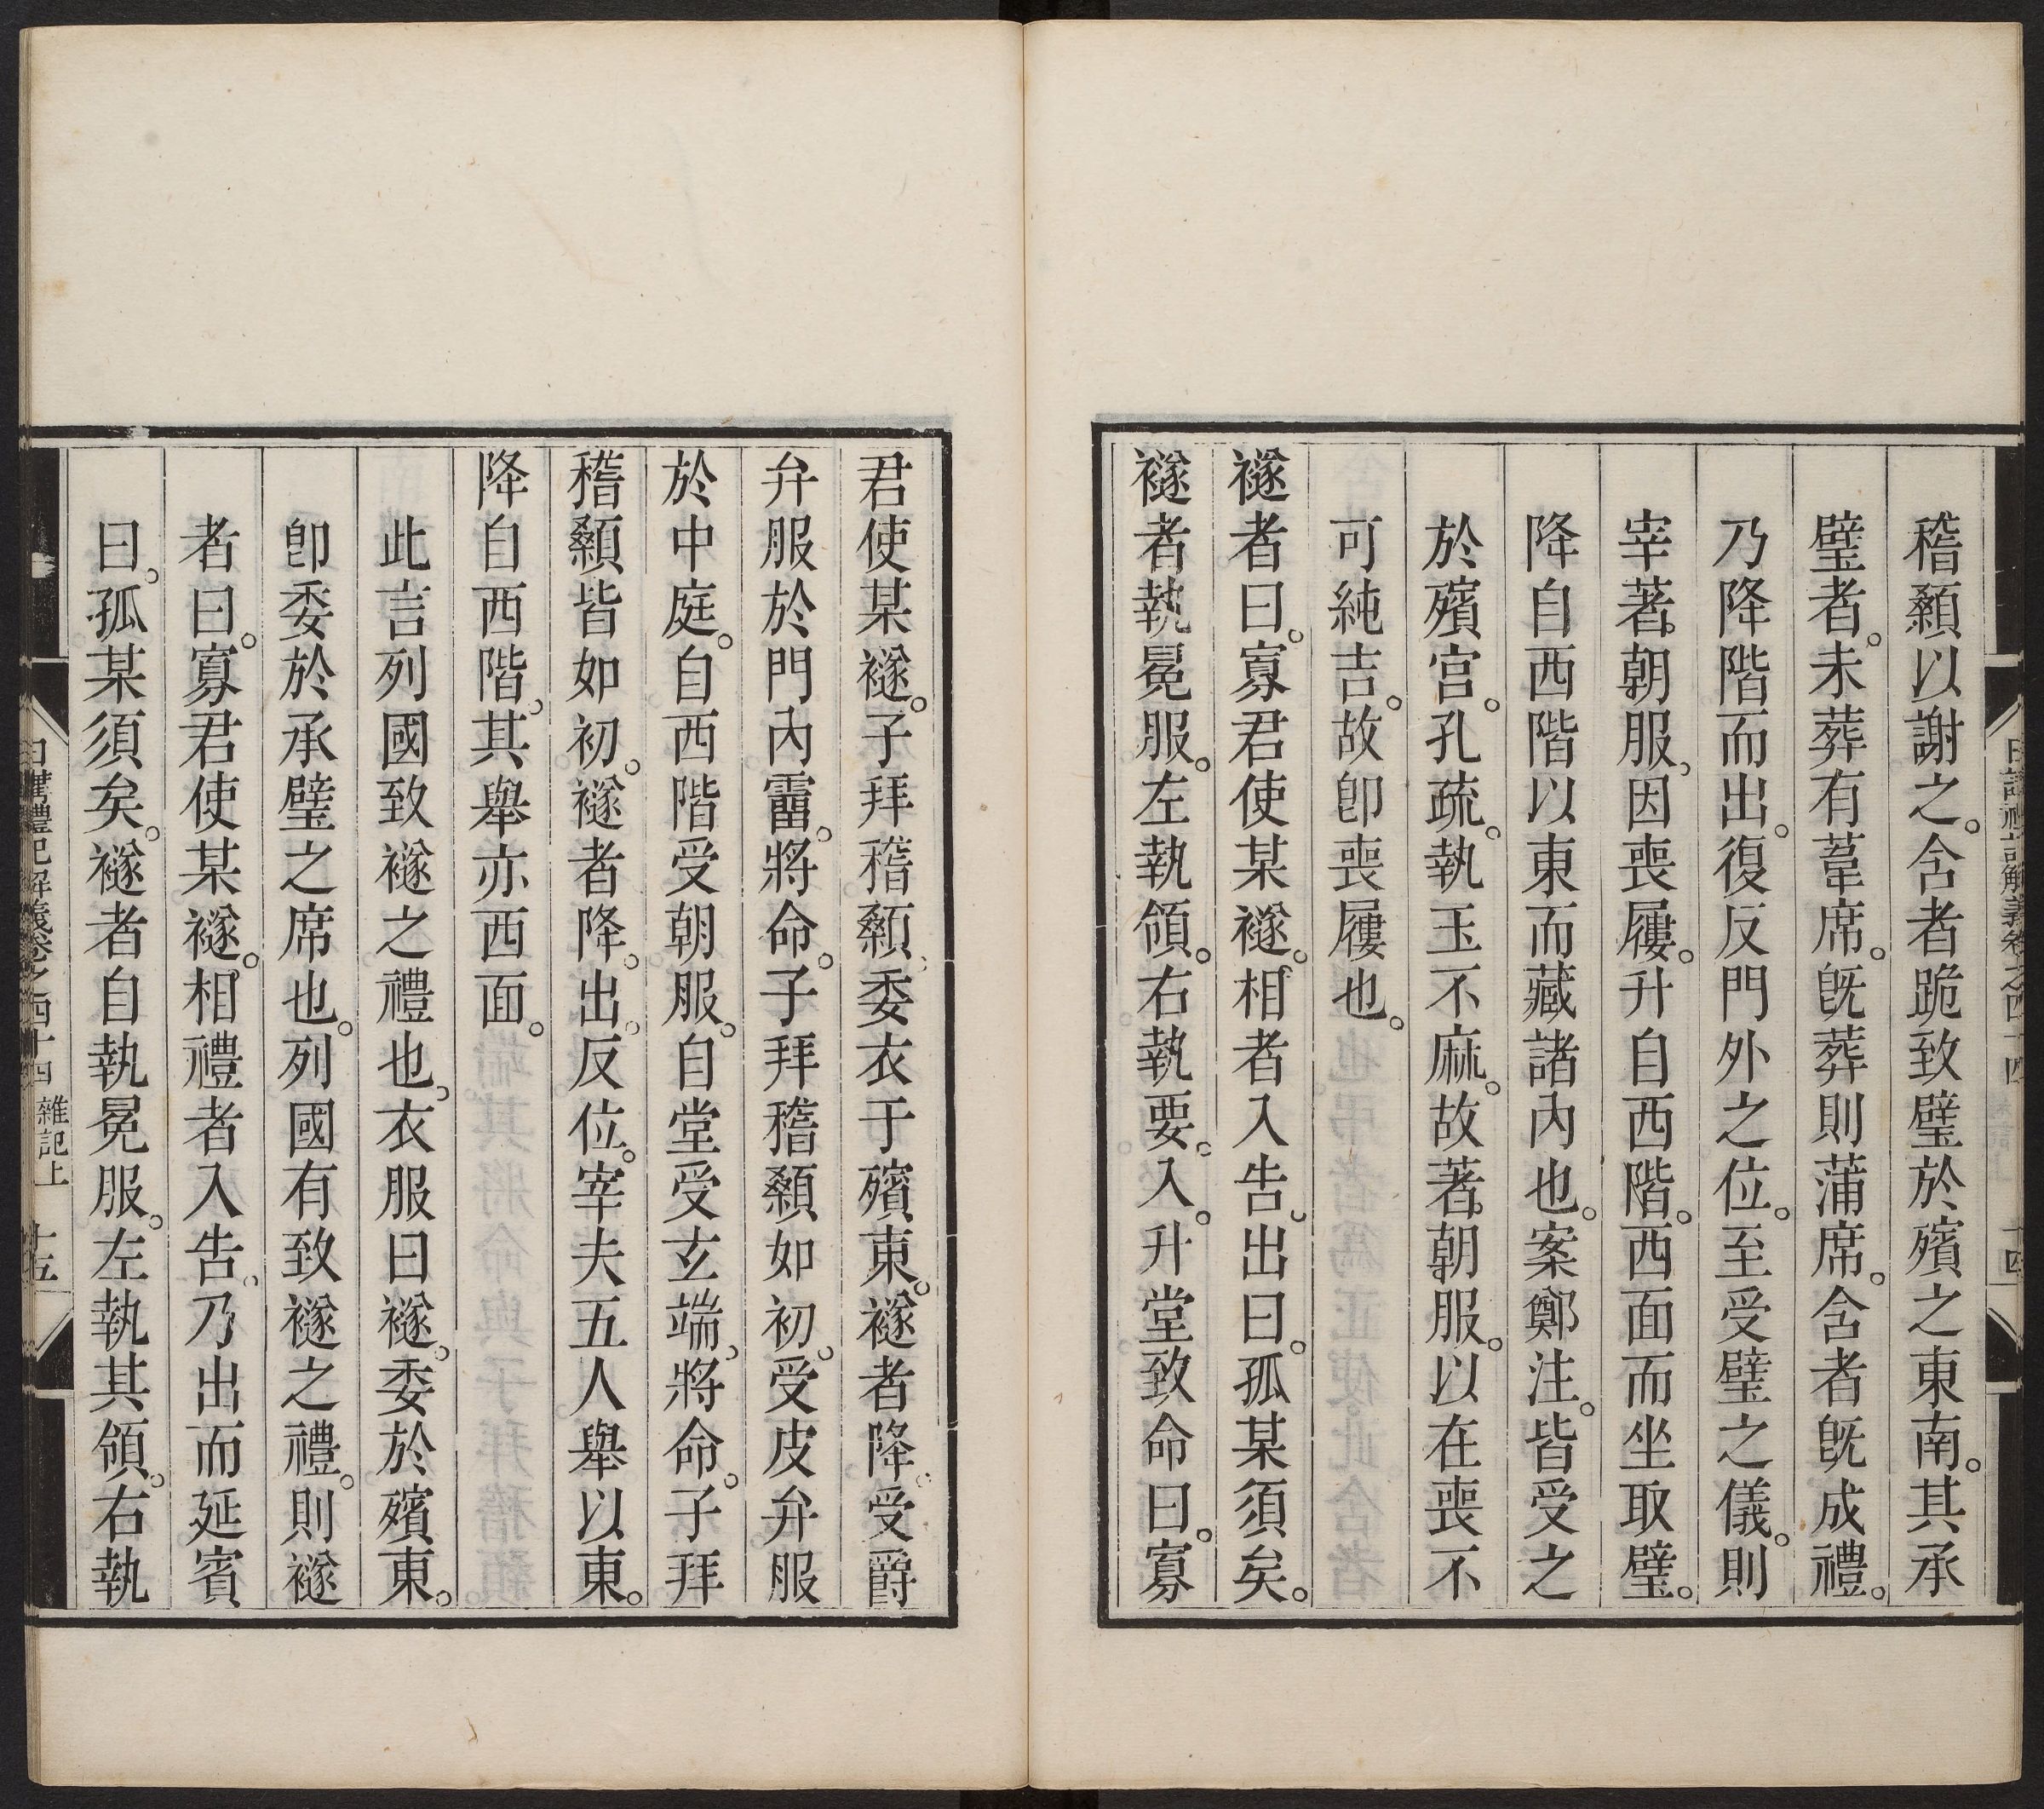 稽顙以謝之。含者跪致璧於殯之東南。其承
璧者。未葬有葦席。旣葬則蒲席。含者旣成禮。
乃降階而出。復反門外之位。至受璧之儀。則
宰著。朝服。因喪屨。升自西階。西面而坐取璧。
降自西階以東而藏諸內也。案鄭注。皆受之
於殯宮。孔疏。執玉不麻。故著。朝服。以在喪不
可純吉。故卽喪屨也。
襚者曰。寡君使某襚。相者入告。出曰。孤某須矣。
襚者執冕服。左執領。右執要。入。升堂致命曰。寡
君使某襚。子拜稽顙。委衣于殯東。襚者降。受爵
弁服於門內霤。將命。子拜稽顙如初。受皮弁服
於中庭。自西階受朝服。自堂受玄端。將命。子拜
稽顙皆如初。襚者降。出。反位。宰夫五人舉以東。
降自西階。其舉亦西面。
此言列國致襚之禮也。衣服曰襚。委於殯東。
卽委於承璧之席也。列國有致襚之禮。則襚
者曰。寡君使某襚。相禮者入告。乃出而延賓
曰。孤某須矣。襚者自執冕服。左執其領。右執
日講禮記解義卷之四十四 雜記上 十五